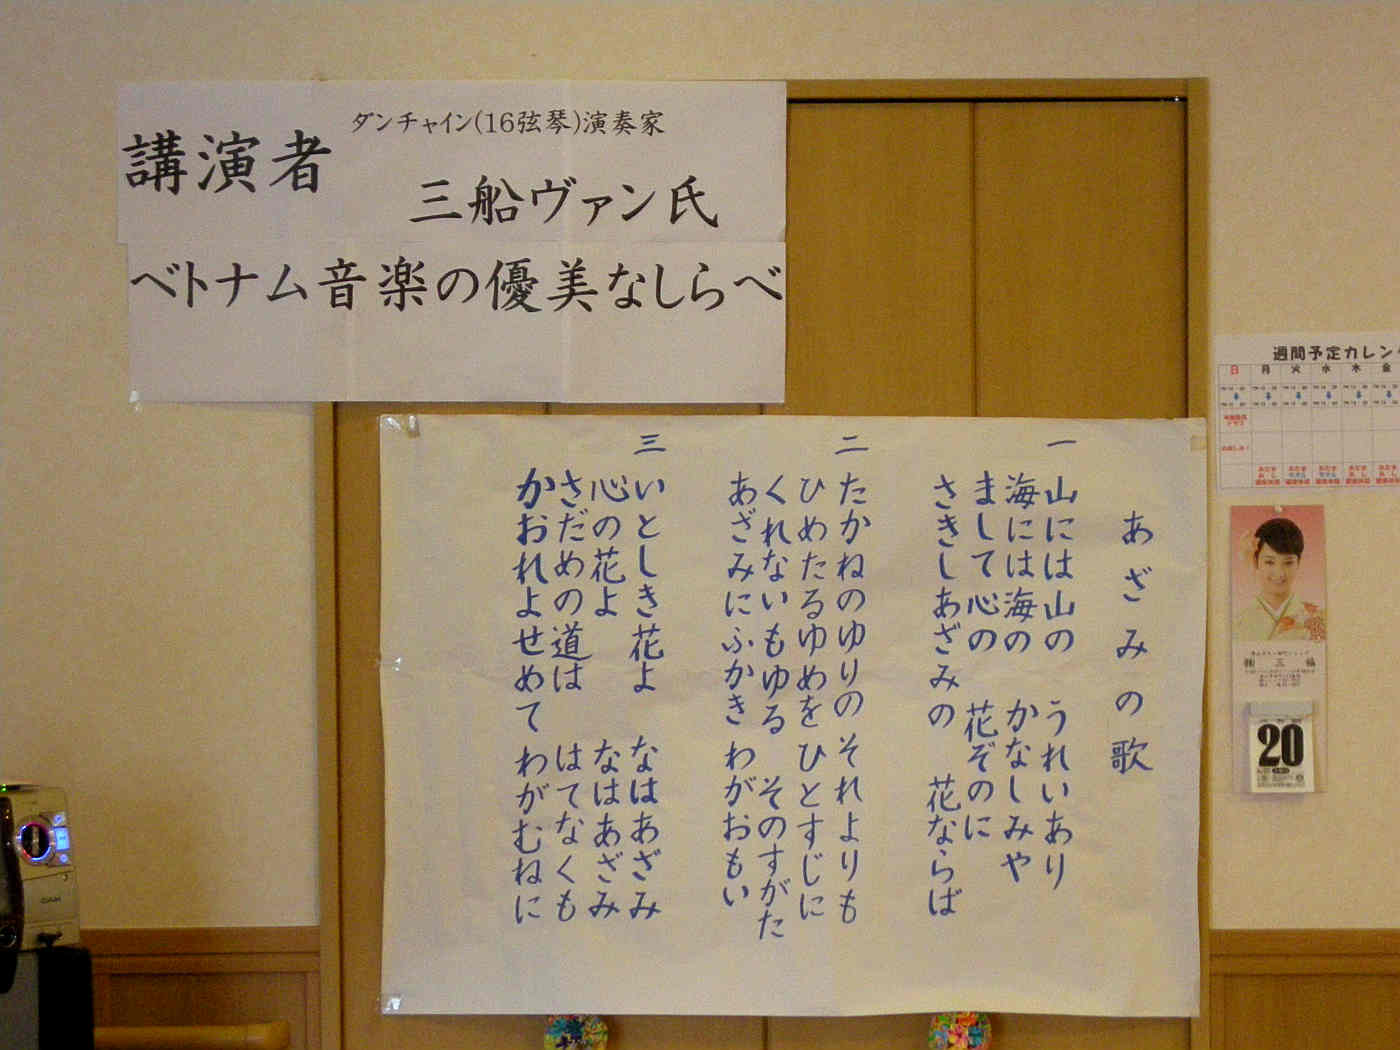 ダンチャイン(16弦琴)演奏家
講演者
三船ヴァン氏
ベトナム音楽の優美なしらべ
あざみの歌
一
山には山の うれいあり
海には海の かなしみや
まして心の 花ぞのに
さきしあざみの 花ならば
二
たかねのゆりの それよりも
ひめたるゆめを ひとすじに
くれないもゆる そのすがた
あざみにふかき わがおもい
三
いとしき花よ なはあざみ
心の花よ なはあざみ
さだめの道は はてなくも
かおれよせめて わがむねに
週間予定カレン
日 月 火 水 木 金
20